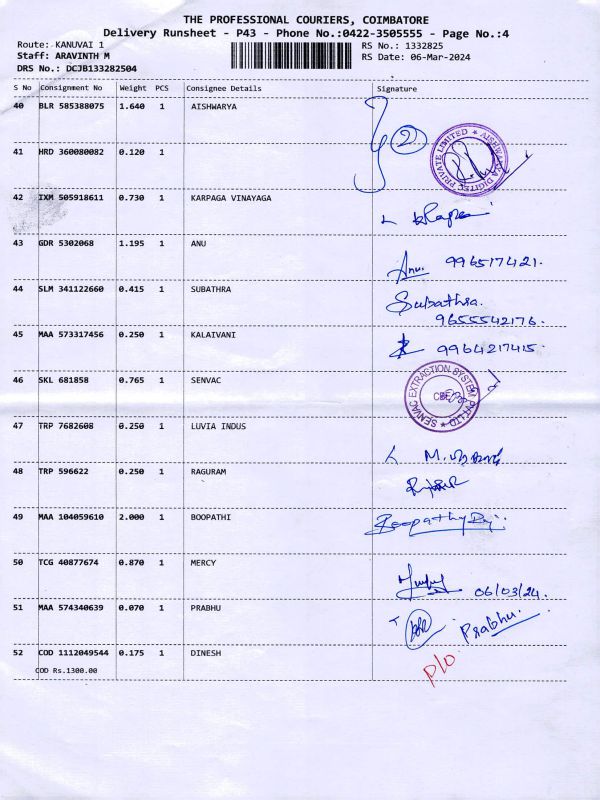 THE PROFESSIONAL COURIERS, COIMBATORE
Delivery Runsheet - P43 - Phone No.:0422-3505555 - Page No.:4
Route: KANUVAI 1 RS No.: 1332825
Staff: ARAVINTH M RS Date: 06-Mar-2024
DRS No.: DCJB133282504
S No Consignment No Weight PCS Consignee Details Signature
40 BLR 585388075 1.640 1 AISHWARYA
2
AISHWARYA DIGITEC PRIVATE LIMITED
41 HRD 360080082 0.120 1
42 IXM 505918611 0.730 1 KARPAGA VINAYAGA
43 GDR 5302068 1.195 1 ANU
Anu. 996517421.
44 SLM 341122660 0.415 1 SUBATHRA
Subathra.
9655542176.
45 MAA 573317456 0.250 1 KALAIVANI
9964217415.
46 SKL 681858 0.765 1 SENVAC
SENVAC EXTRACTION SYSTEM PVT LTD
CBE
47 TRP 7682608 0.250 1 LUVIA INDUS
48 TRP 596622 0.250 1 RAGURAM
49 MAA 104059610 2.000 1 BOOPATHI
50 TCG 40877674 0.870 1 MERCY
06/03/24.
51 MAA 574340639 0.070 1 PRABHU
Prabhu.
52 COD 1112049544 0.175 1 DINESH
COD Rs.1300.00
P/O